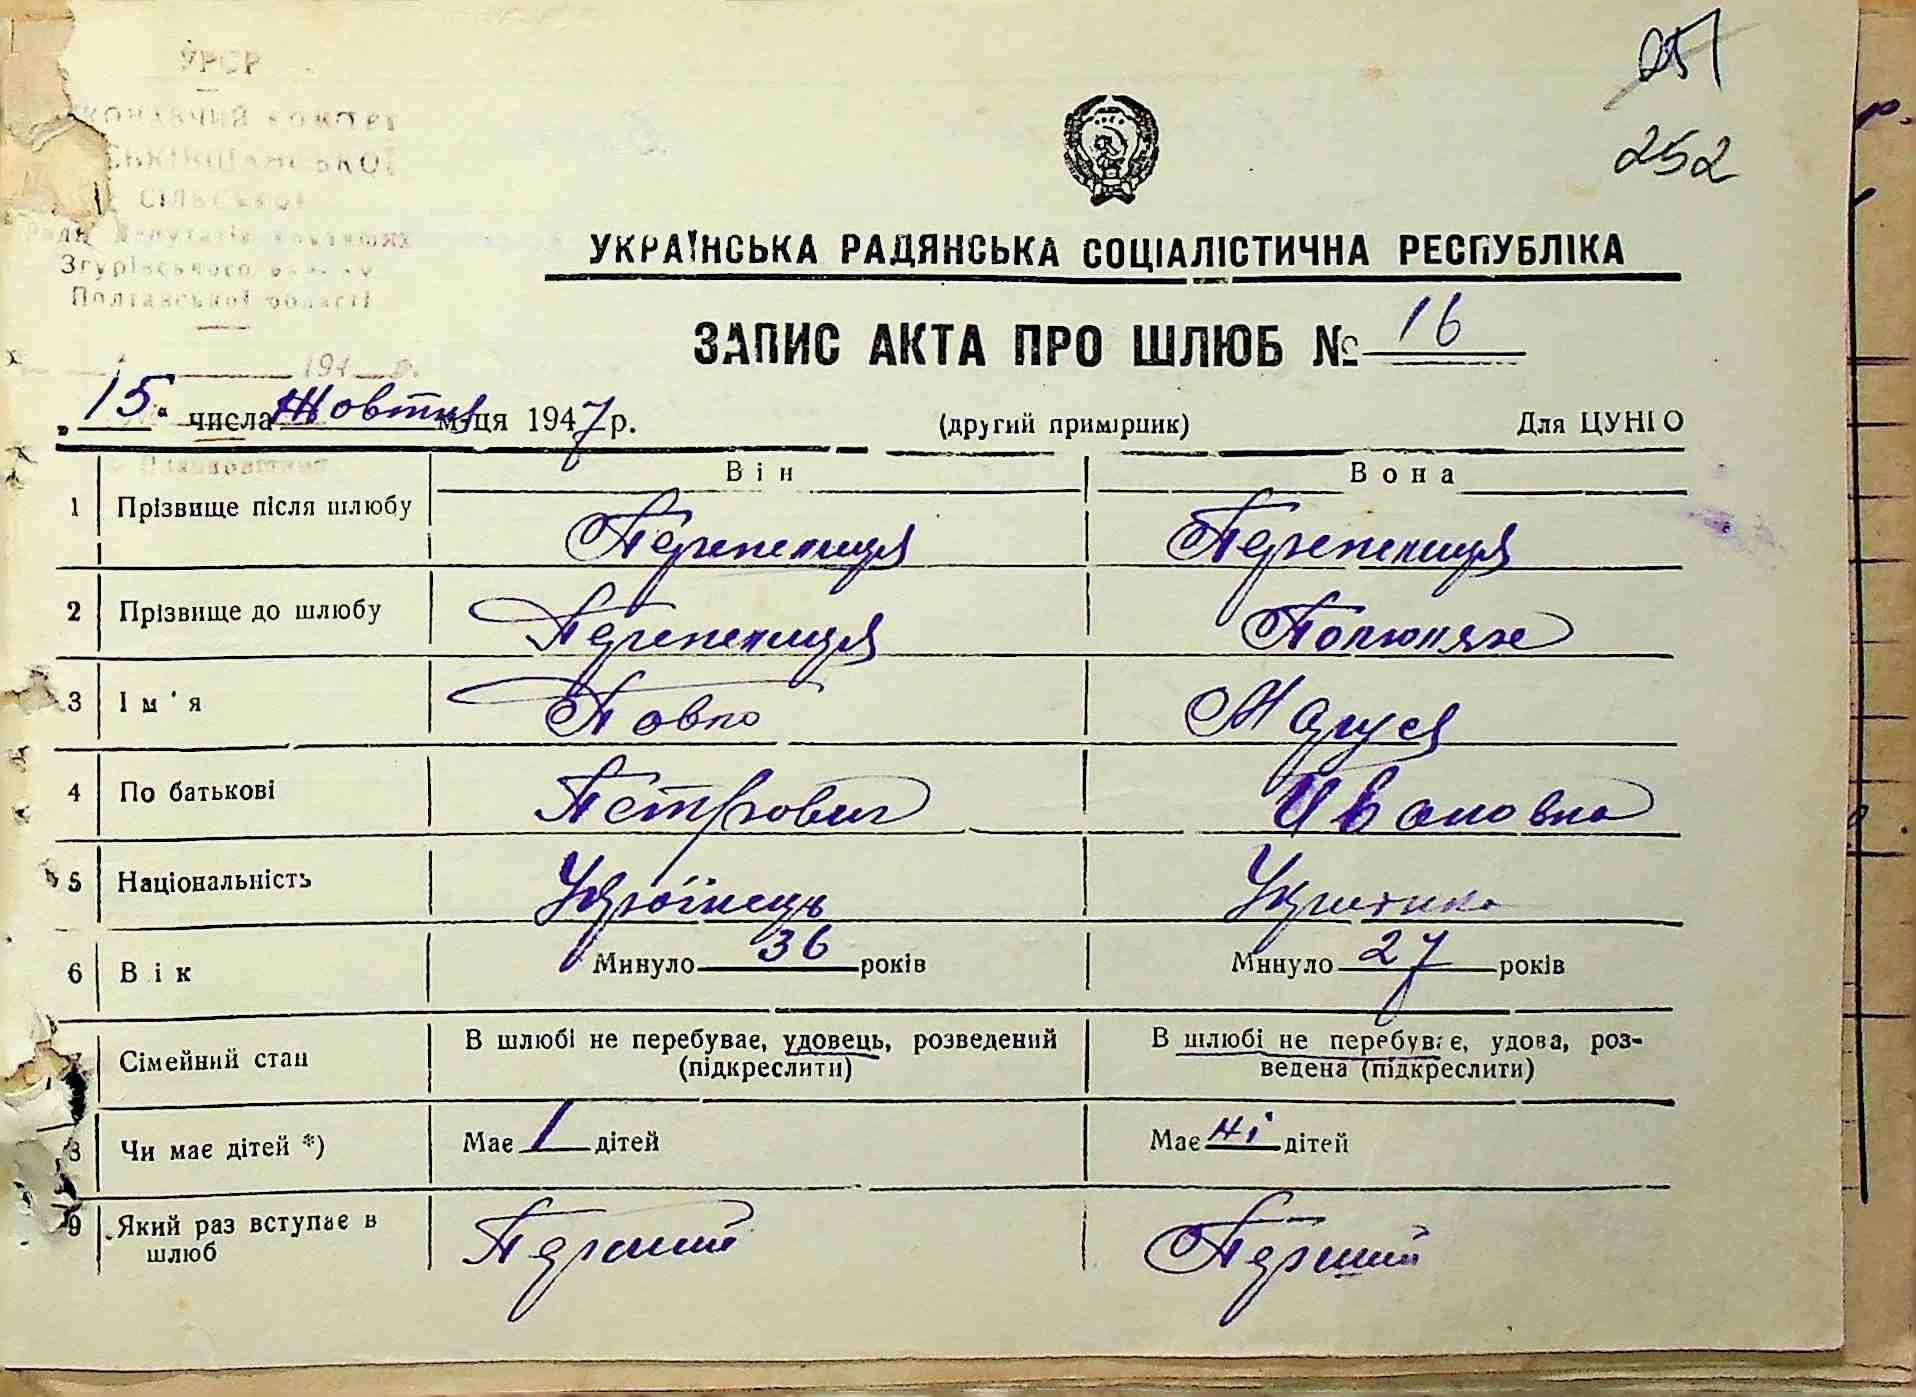 УРСР
СІЛЬСЬКОЇ
Ради депутатів трудящих
Згурівського району
Полтавської області
194 р.
251
252
УКРАЇНСЬКА РАДЯНСЬКА СОЦІАЛІСТИЧНА РЕСПУБЛІКА
ЗАПИС АКТА ПРО ШЛЮБ № 16
"15" числа Жовтня м-ця 1947 р. (другий примірник) Для ЦУНГО
Він Вона
1 Прізвище після шлюбу Перепелиця Перепелиця
2 Прізвище до шлюбу Перепелиця
3 Ім'я Павло Маруся
4 По батькові Петрович Ивановна
5 Національність Українець Українка
6 Вік Минуло 36 років Минуло 27 років
7 Сімейний стан В шлюбі не перебуває, удовець, розведений (підкреслити) В шлюбі не перебуває, удова, роз-
ведена (підкреслити)
8 Чи має дітей *) Має 1 дітей Має ні дітей
9 Який раз вступає в шлюб Перший Перший